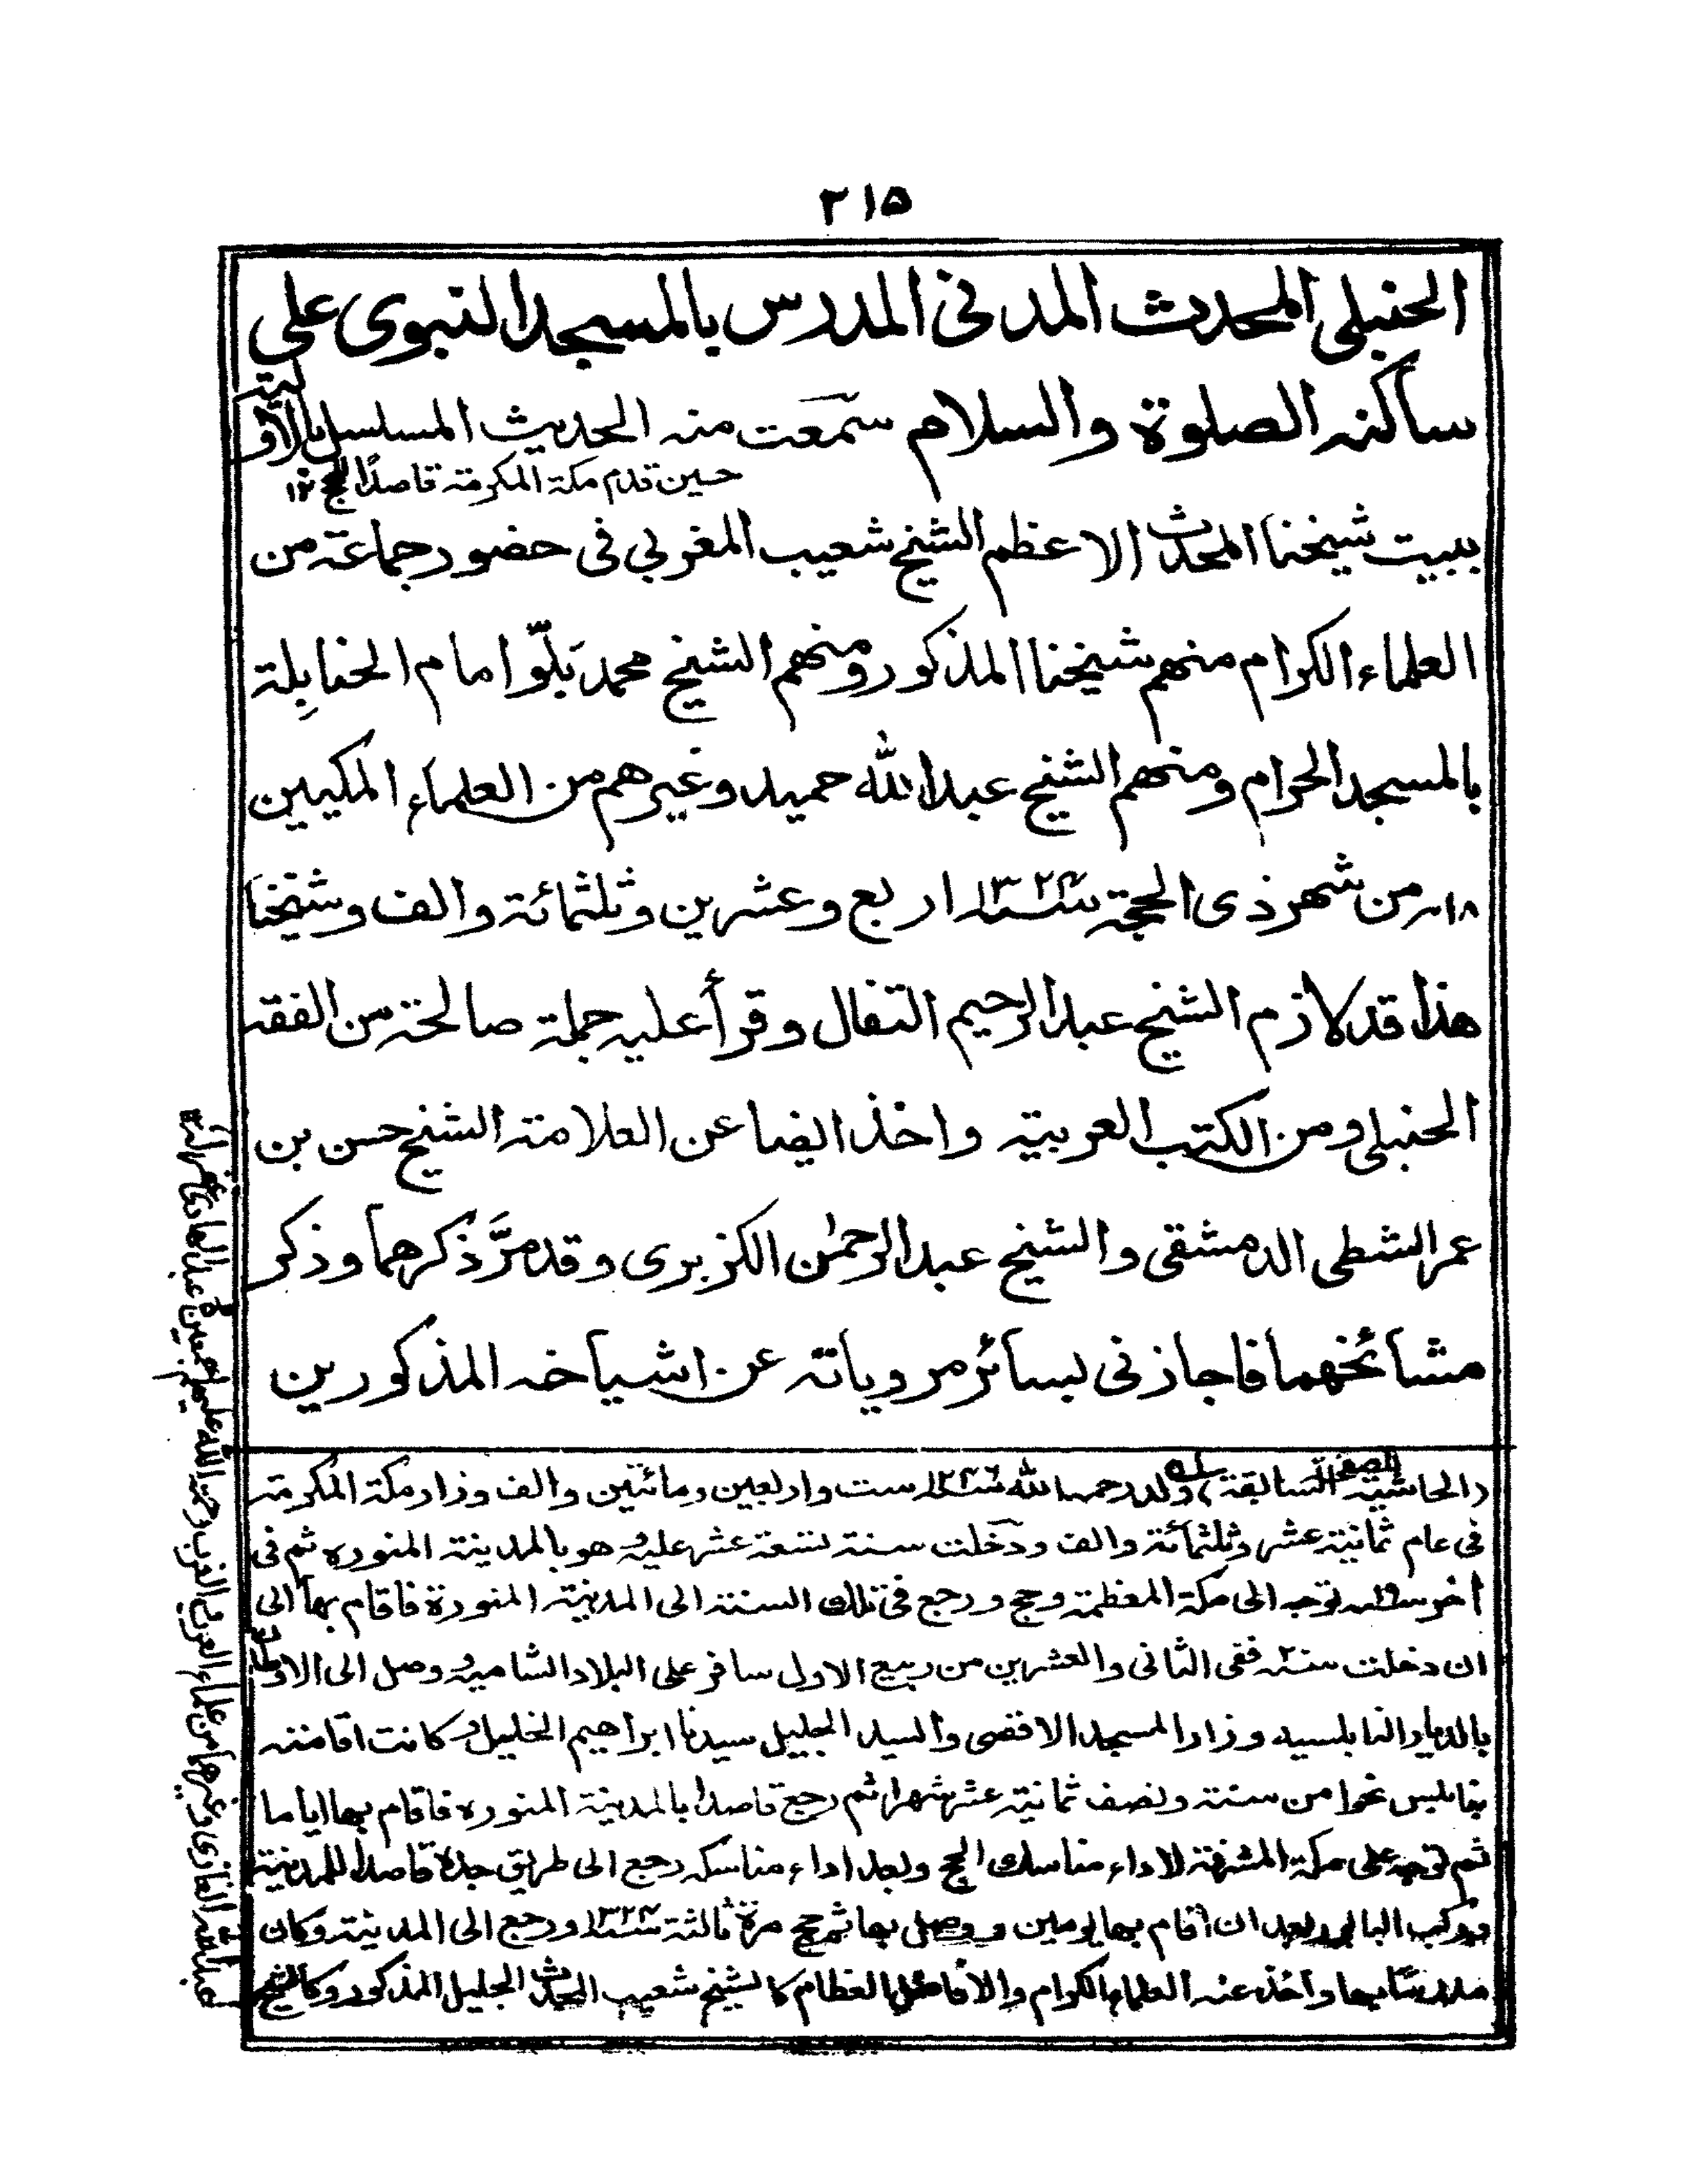 ٢١٥
الحنبلي المحدث المدني المدرس بالمسجد النبوي على
ساكنه الصلوة والسلام سمعت منه الحديث المسلسل بالاولية
حين قدم مكة المكرمة قاصدًا الحج ١٢
ببيت شيخنا المحدث الاعظم الشيخ شعيب المغربي فى حضور جماعة من
العلماء الكرام منهم شيخنا المذكور ومنهم الشيخ محمد بَلّو امام الحنابِلة
بالمسجد الحرام ومنهم الشيخ عبد الله حميد وغيرهم من العلماء المكيين
١٨ من شهر ذى الحجة سنة ١٣٢٤ اربع وعشرين وثلثمائة والف وشيخنا
هذا قد لازم الشيخ عبد الرحيم التفال وقرأ عليه جملة صالحة من الفقه
الحنبلى ومن الكتب العربية واخذ ايضا عن العلامة الشيخ حسن بن
عمر الشطى الدمشقى والشيخ عبد الرحمٰن الكزبرى وقد مرَّ ذكرهما وذكر
مشائخهما فاجازنى بسائر مروياته عن اشياخه المذكورين
(الحاشية الصفحة السابقة) ولد رحمه الله سنة ١٢٤٦ ست واربعين ومائتين والف وزار مكة المكرمة
فى عام ثمانية عشر وثلثمائة والف ودخلت سنة تسعة عشر عليه وهو بالمدينة المنوره ثم فى
اٰخر سنة ١٩ توجه الى مكة المعظمة وحج ورجع فى تلك السنة الى المدينة المنورة فاقام بها الى
ان دخلت سنة ٢٠ ففى الثانى والعشرين من ربيع الاول سافر على البلاد الشاميه ووصل الى الاوطان
بالديار النابلسيه وزار المسجد الاقصى والسيد الجليل سيدنا ابراهيم الخليل وكانت اقامته
بنابلس نحوا من سنة ونصف ثمانية عشر شهرا ثم رجع قاصدا بالمدينة المنوره فاقام بها اياما
ثم توجه على مكة المشرفة لاداء مناسك الحج وبعد اداء مناسكه رجع الى طريق جدة قاصدا للمدينة
وركب البابور بعد ان اقام بها يومين ووصل بها ثم حج مرة ثالثة سنة ١٣٢٤ ورجع الى المدينة وكان
مدرسًا بها واخذ عنه العلماء الكرام والافاضل العظام كالشيخ شعيب المحدث الجليل المذكور وكالشيخ
عبد الله القازى وغيرهما من علماء العرب رحمة الله عليهم اجمعين عبد الهادى غفر الله